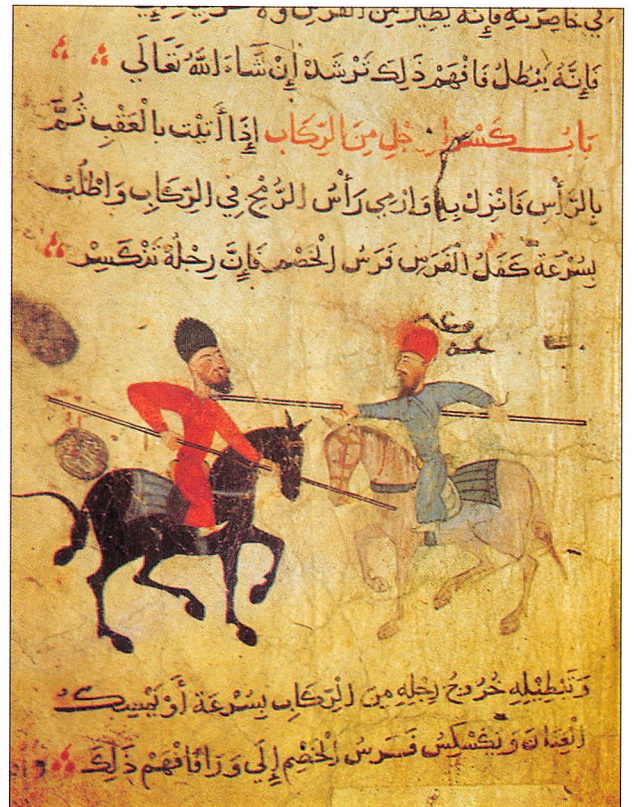 في خاصرته فإنه يطير من الفرس
فَإِنَّهُ يَبْطُلُ فَافْهَمْ ذَلِكَ تَرْشَدْ إِنْ شَاءَ اللهُ تَعَالَى
بَابُ كَسْر الرجل مِنَ الرِّكَابِ إِذَا أَتَيْتَ بِالْعَقْبِ ثُمَّ
بِالرَّأْسِ فَانْزِلْ بِهِ وَارْمِي رَأْسُ الرُّمْحِ فِي الرِّكَابِ وَاطْلُبْ
بِسُرْعَةٍ كَفَلُ الْفَرَسِ فَرَسُ الْخَصْمِ فَإِنَّ رِجْلَهُ تَنْكَسِرْ
وَتَبْطِيلِهِ خُرُوجُ رِجْلِهِ مِنَ الرِّكَابِ بِسُرْعَةٍ أَوْ يَمْسِكْ
الْعِنَانَ فَرَسُ الْخَصْمِ إِلَى وَرَاءِ فَافْهَمْ ذَلِكَ